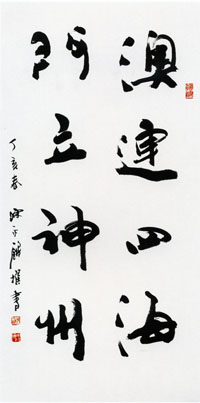 澳連四海
門立神州
丁亥春
撰書